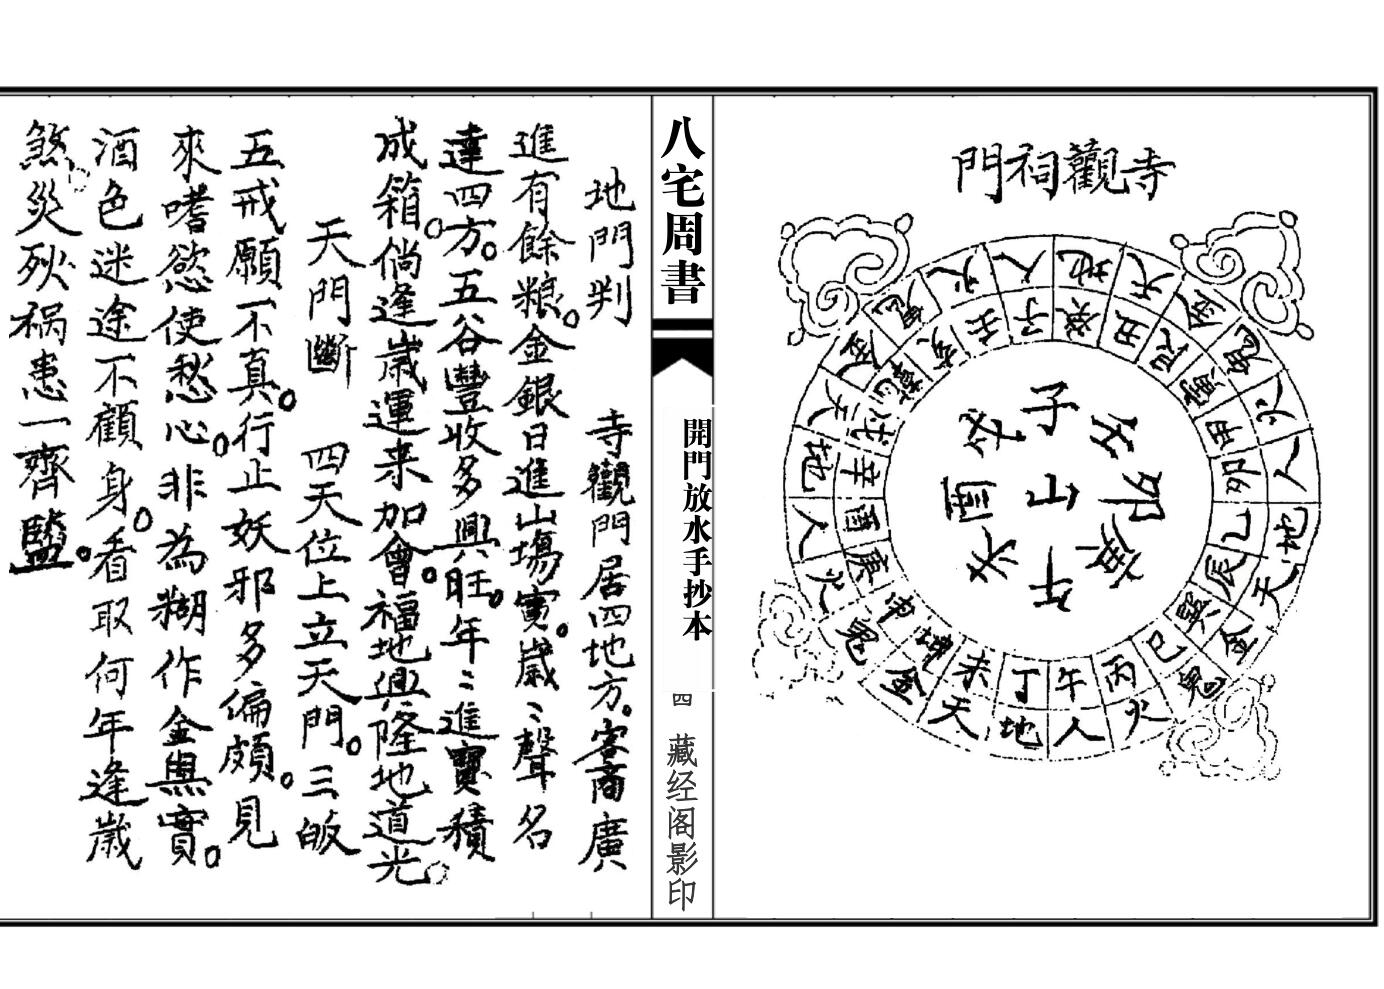 寺觀祠門
子
山
午
天
地
人
火
鬼
金
天
地
人
火
鬼
金
天
地
人
火
鬼
金
天
地
人
火
鬼
金
子
癸
丑
艮
寅
甲
卯
乙
辰
巽
巳
丙
午
丁
未
坤
申
庚
酉
辛
戌
乾
亥
壬
八宅周書
開門放水手抄本
四
藏经阁影印
地門判 寺觀門居四地方。客商廣
進有餘粮。金銀日進山塲實。歲〻聲名
達四方。五谷豐收多興旺。年〻進寶積
成箱。倘逢歲運来加會。福地興隆地道光。
天門斷 四天位上立天門。三皈
五戒願不真。行止妖邪多偏頗。見
來嗜慾使愁心。非為糊作金與實。
酒色迷途不顧身。看取何年逢歲
煞。災殃祸患一齊